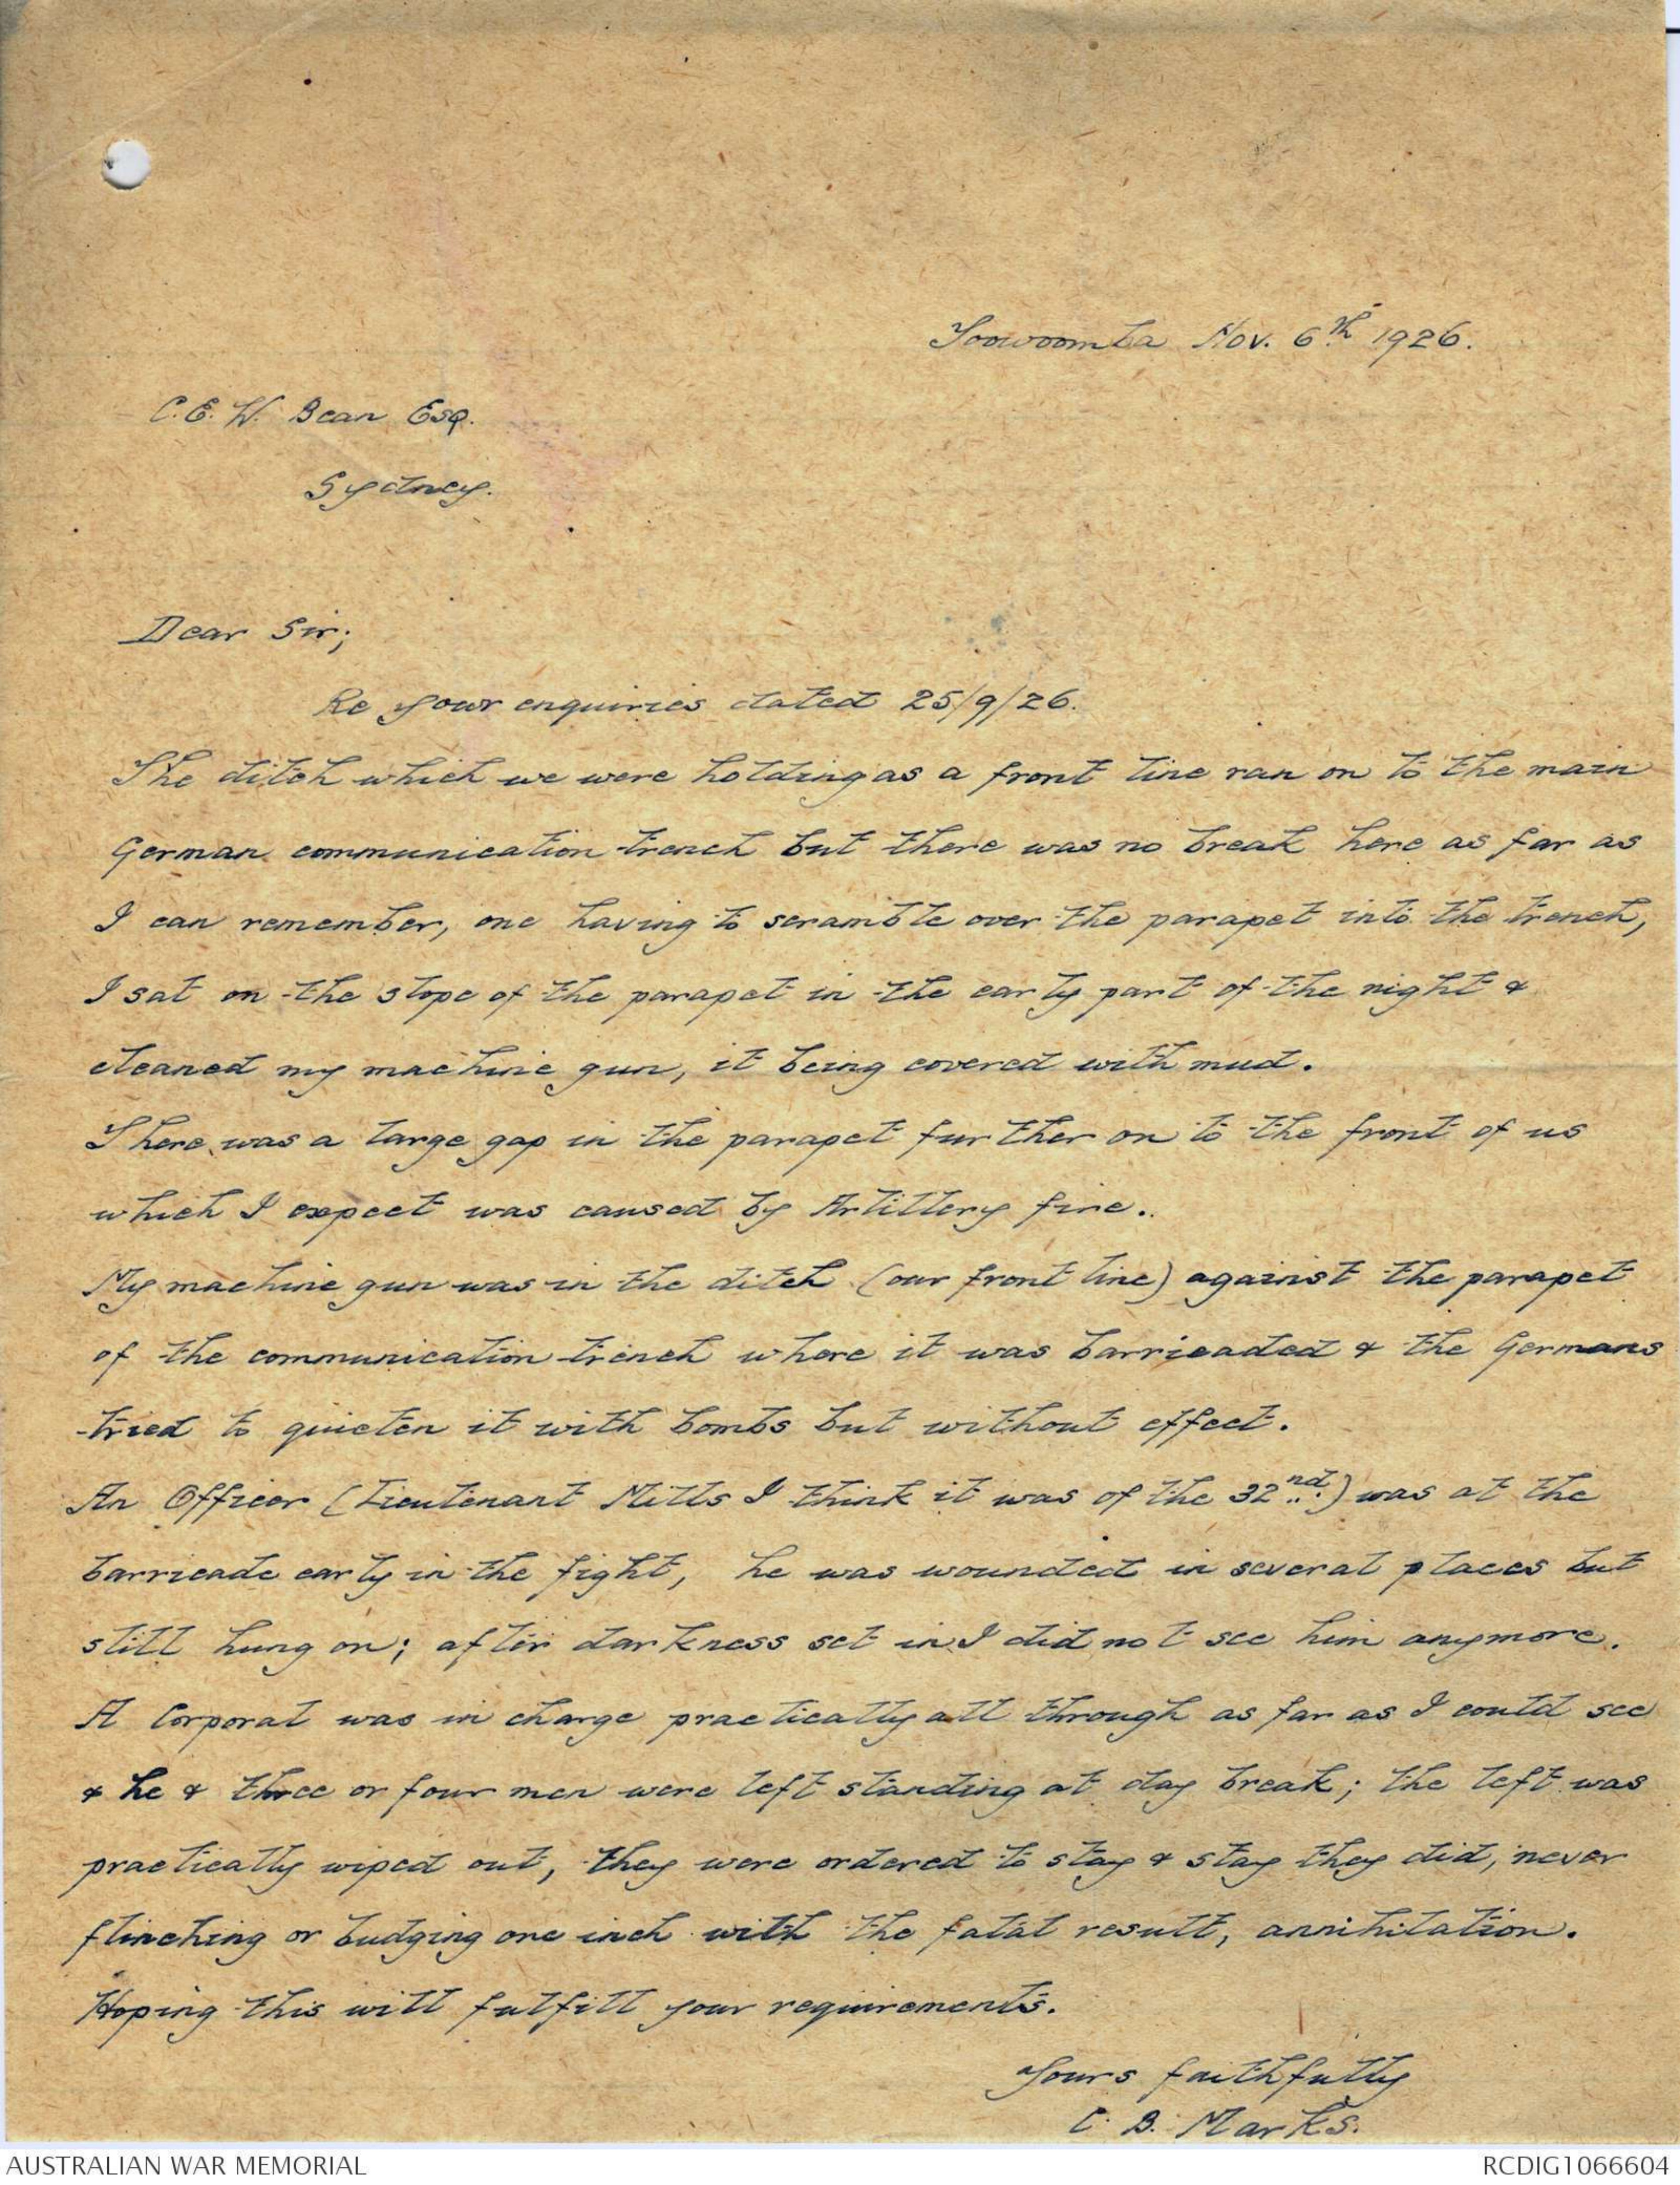 Toowoomba Nov. 6th 1926.
C. E. W. Bean Esq.
Sydney.
Dear Sir;
Re your enquiries dated 25/9/26.
The ditch which we were holding as a front line ran on to the main
German communication trench but there was no break here as far as
I can remember, one having to scramble over the parapet into the trench,
I sat on the slope of the parapet in the early part of the night &
cleaned my machine gun, it being covered with mud.
There was a large gap in the parapet further on to the front of us
which I expect was caused by Artillery fire..
My machine gun was in the ditch (our front line) against the parapet
of the communication trench where it was barricaded & the Germans
tried to quieten it with bombs but without effect.
An Officer (Lieutenant Mills I think it was of the 32nd.) was at the
barricade early in the fight, he was wounded in several places but
still hung on; after darkness set in I did not see him anymore.
A Corporal was in charge practically all through as far as I could see
& he & three or four men were left standing at day break; the left was
practically wiped out, they were ordered to stay & stay they did, never
flinching or budging one inch with the fatal result, annihilation.
Hoping this will fulfill your requirements.
Yours faithfully
C. B. Marks.
AUSTRALIAN WAR MEMORIAL
RCDIG1066604